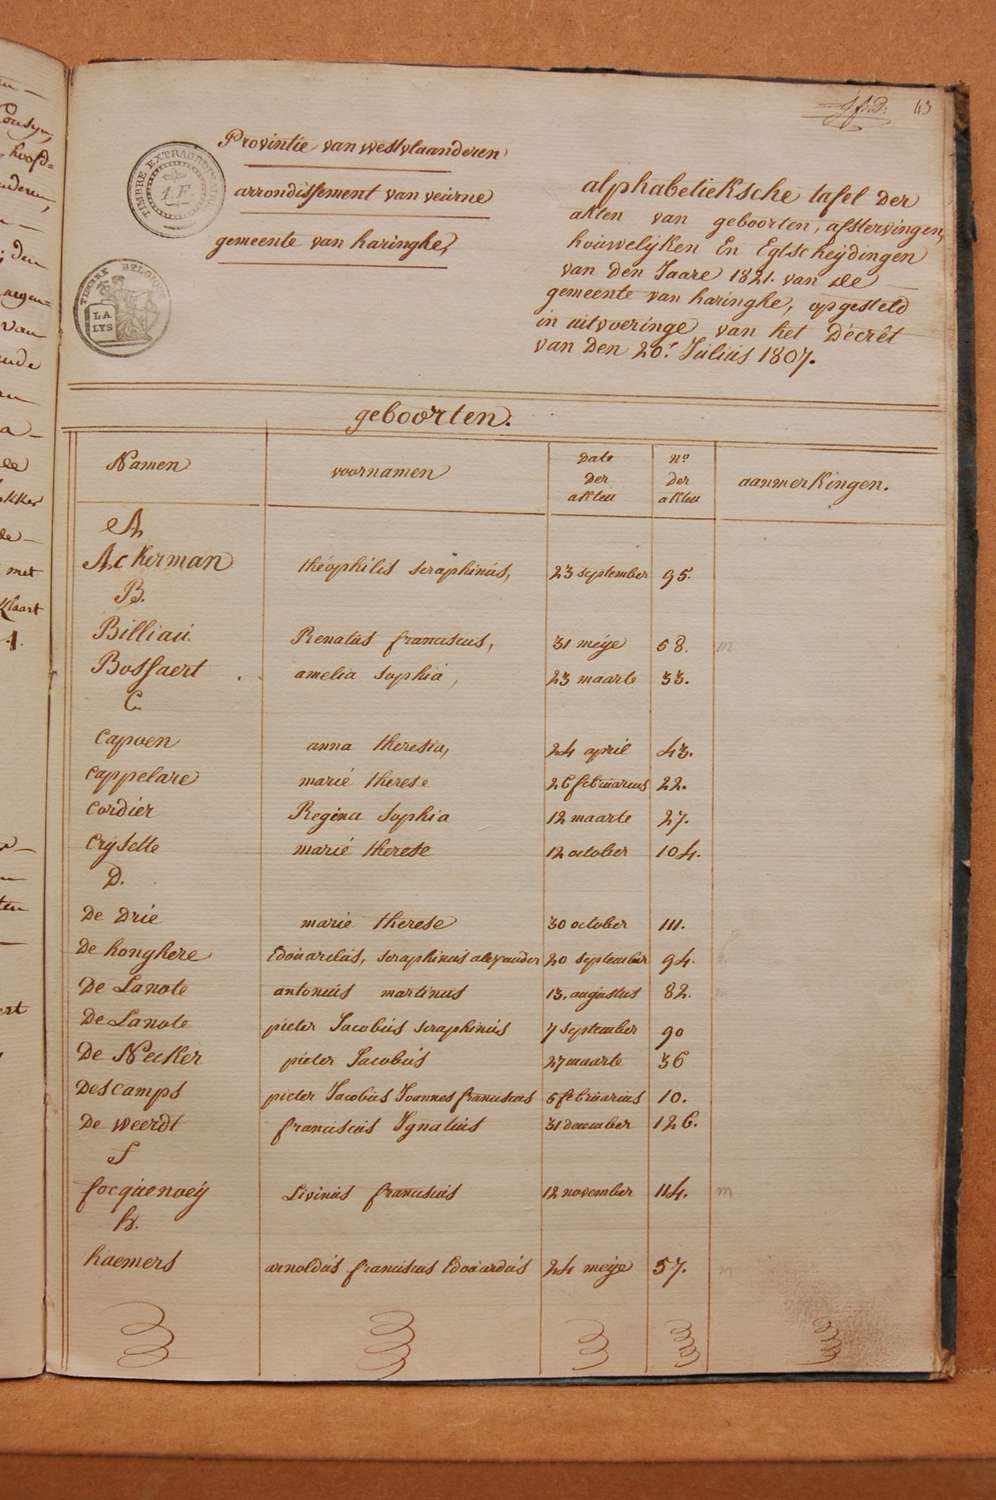 43
Provintie van westvlaanderen
arrondissement van veurne
gemeente van haringhe,
TIMBRE EXTRAORDINAIRE
1. F.
TIMBRE BELGIQUE
LA
LYS
alphabetieksche tafel der
akten van geboorten, afstervingen,
houwelijken En Egtscheijdingen
van den Jaare 1821. van de
gemeente van haringhe, opgesteld
in uitvoeringe van het Décrét
van den 20.r Julius 1807.
geboorten.
Namen voornamen date der akten no der akten aanmerkingen.
A
Ackerman théophilis seraphinus, 23 september 95.
B.
Billiau Renatus franciscus, 31 meije 58. m
Bossaert amelia sophia, 23 maarte 33.
C
Capoen anna theresia, 24 april 43.
Cappelare marié therese 26 februarius 22.
Cordier Regina sophia 12 maarte 27.
Cryselle marié therese 12 october 104.
D.
De Drie marie therese 30 october 111.
De honghere Edouardus, seraphinus alexander 20 september 94.
De Lanote antonius martinus 13. augustus 82.
De Lanote pieter Jacobus seraphinus 7 september 90
De Necker pieter Jacobus 27 maarte 36
Descamps pieter Jacobus Joannes franciscus 6 februarius 10.
De weerdt franciscus Ignatius 31 december 126.
f
focquenoeij Livinus franciscus 12 november 114. m
h.
haemers arnoldus franciscus Edouardus 24 meije 57.